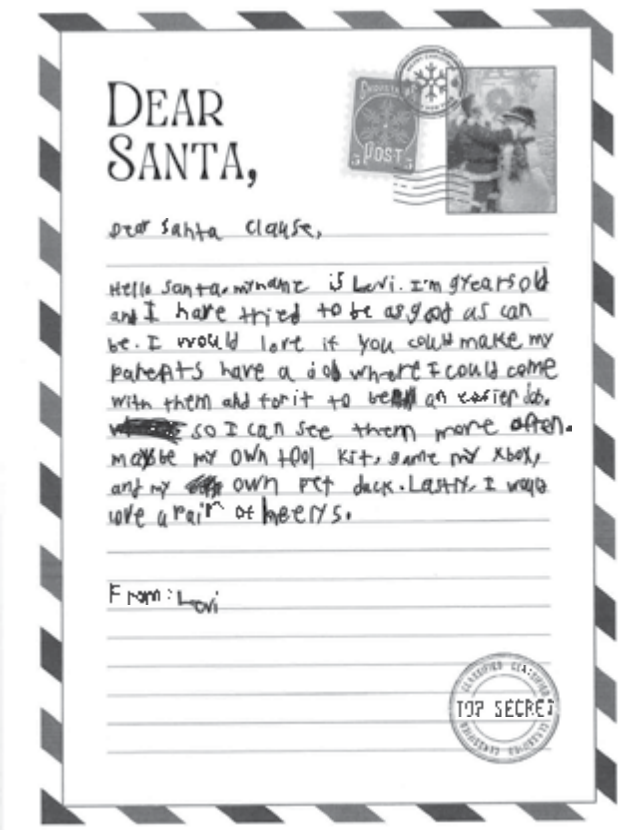 DEAR
SANTA,
CHRISTMAS
POST
5 5
Dear Santa Clause,
Hello Santa. my name is Levi. I'm 9 years old
and I have tried to be as good as can
be. I would love if you could make my
parents have a job where I could come
with them and for it to be an easier job.
so I can see them more often.
maybe my own tool kit, game my xbox,
and my own pet duck. Lastly, I would
love a pair of heelys.
From: Levi
CLASSIFIED CLASSIFIED
TOP SECRET
CLASSIFIED CLASSIFIED